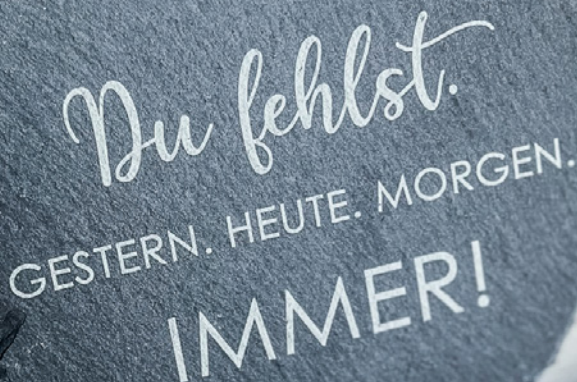 Du fehlst.
GESTERN. HEUTE. MORGEN.
IMMER!